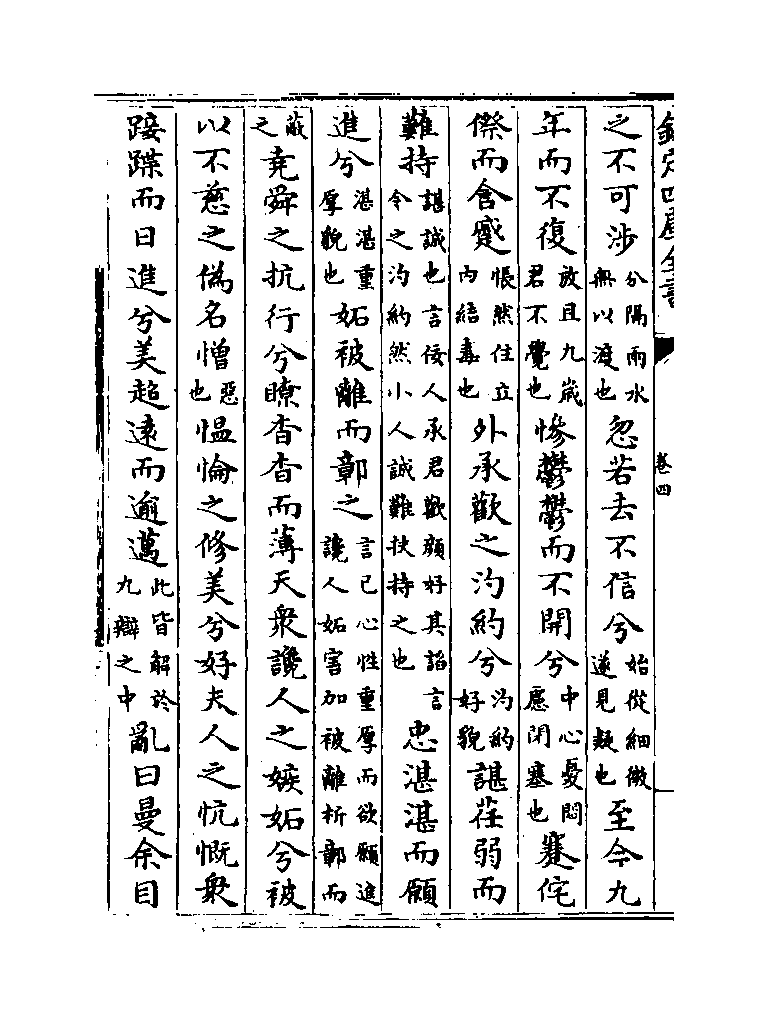 欽定四庫全書
卷四
之不可渉分隔兩水無以渡也忽若去不信兮始從細微遂見疑也至今九
年而不復放且九歲君不覺也慘鬱鬱而不開兮中心憂悶慮閉塞也蹇侘
傺而含慼悵然住立內結毒也外承歡之汋約兮汋約好貌諶荏弱而
難持諶誠也言佞人承君歡顔好其諂言令之汋約然小人誠難扶持之也忠湛湛而願
進兮湛湛重厚貌也妬被離而鄣之言已心性重厚而欲願進讒人妬害加被離析鄣而
蔽之堯舜之抗行兮瞭杳杳而薄天衆讒人之嫉妬兮被
以不慈之偽名憎惡也慍惀之修美兮好夫人之忼慨衆
踥蹀而日進兮美超遠而逾邁此皆解於九辯之中亂曰曼余目